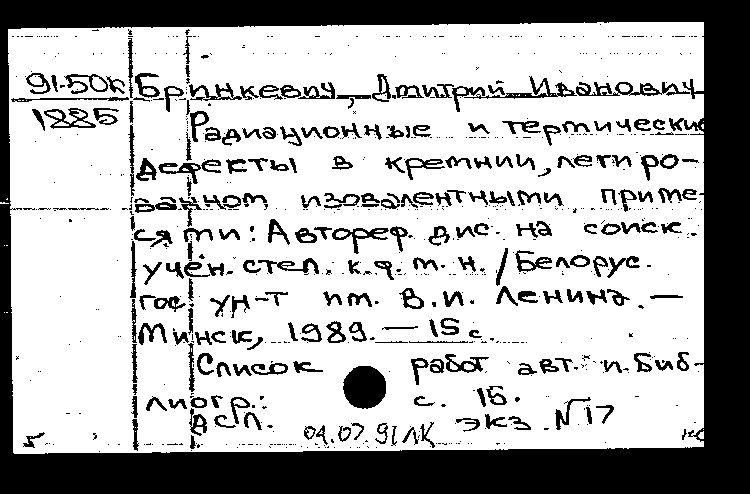 91-50к Бринкевич, Дмитрий Иванович
1885 Радиационные и термические
дефекты в кремнии, легиро-
ванном изовалентными приме-
сями: Автореф. дис. на соиск.
учён. степ. к.ф.-м.н. / Белорус.
гос. ун-т им. В.И. Ленина. —
Минск, 1989. — 15 с.
Список работ авт. и Биб-
лиогр.: с. 15.
ДСП. экз. №17
04.07.91 ЛК